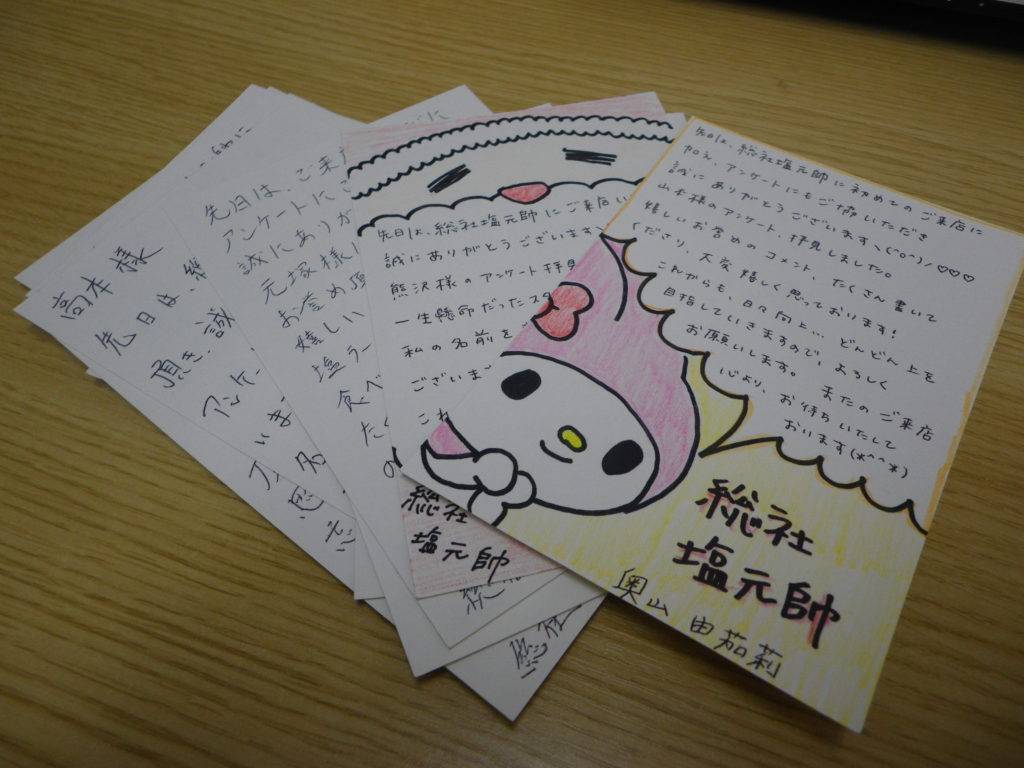 先日は、総社塩元帥に初めてのご来店に
加え、アンケートにもご協力いただき
誠にありがとうございます\(^o^)/♡♡♡
山本様のアンケート、拝見しました。
嬉しいお誉めのコメント、たくさん書いて
くださり、大変嬉しく思っております!
これからも、日々向上…どんどん上を
目指していきますので、よろしく
お願いします。またのご来店
心より、お待ちいたして
おります(*^^*)
総社
塩元帥
奥山 由茄莉
先日は、総社塩元帥にご来店い
誠にありがとうございます、
熊沢様のアンケート拝見
一生懸命だったスタ
私の名前をご
ございま
これ
総社
塩元帥
先日は、ご来店
アンケートにご
誠にありが
元塚様
お誉め頂
嬉しい
塩ラー
食べ
たく
高本様
先日は、総
頂き、誠
アンケ
いま